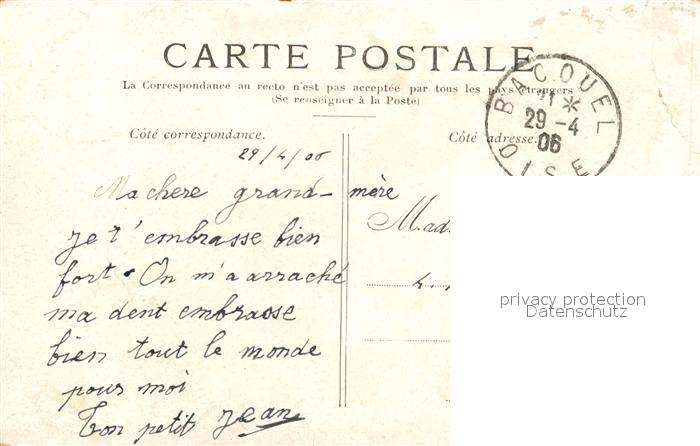 CARTE POSTALE
La Correspondance au recto n'est pas acceptée par tous les pays étrangers
(Se renseigner à la Poste)
BACOUEL
21 *
29 - 4
06
OISE
Côté correspondance.
Côté adresse.
29/4/06
Ma chere grand-mère
Je t'embrasse bien
fort. On m'a arraché
ma dent embrasse
bien tout le monde
pour moi
Ton petit Jean
Mad
4.
privacy protection
Datenschutz